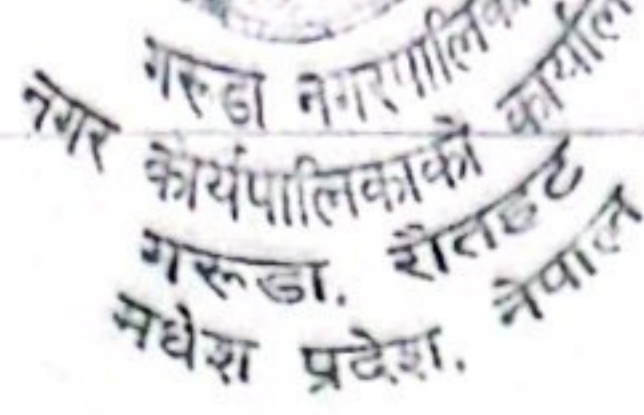 गरुडा नगरपालिका
नगर कार्यपालिकाको कार्याल
गरूडा, रौतहट
मधेश प्रदेश, नेपाल